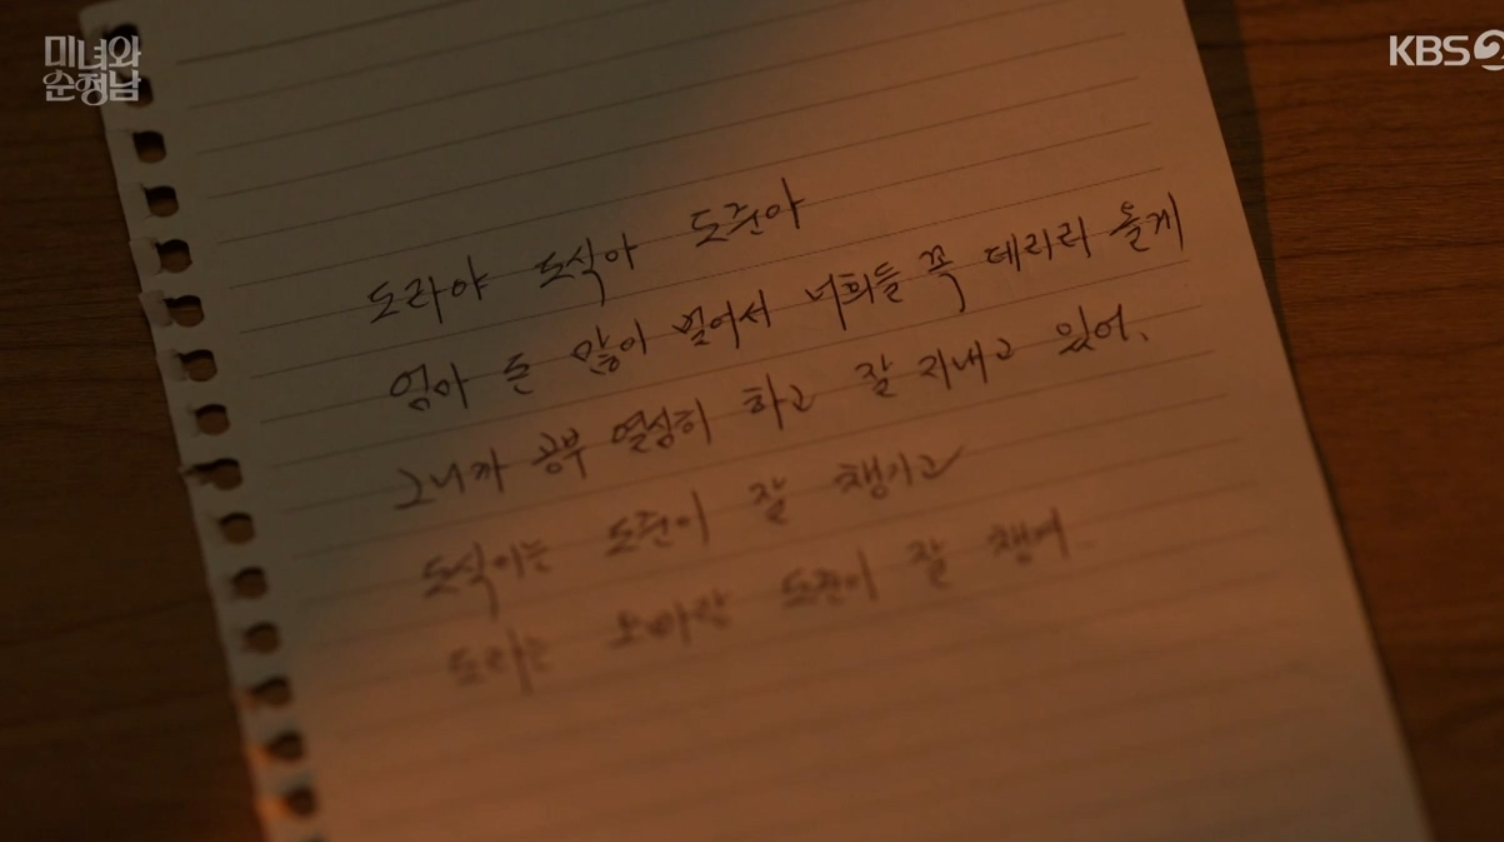 미녀와
순정남
KBS2
도라야 도식아 도준아
엄마 돈 많이 벌어서 너희들 꼭 데리러 올게
그니까 공부 열심히 하고 잘 지내고 있어.
도식이는 도준이 잘 챙기고
도라는 오빠랑 도준이 잘 챙겨